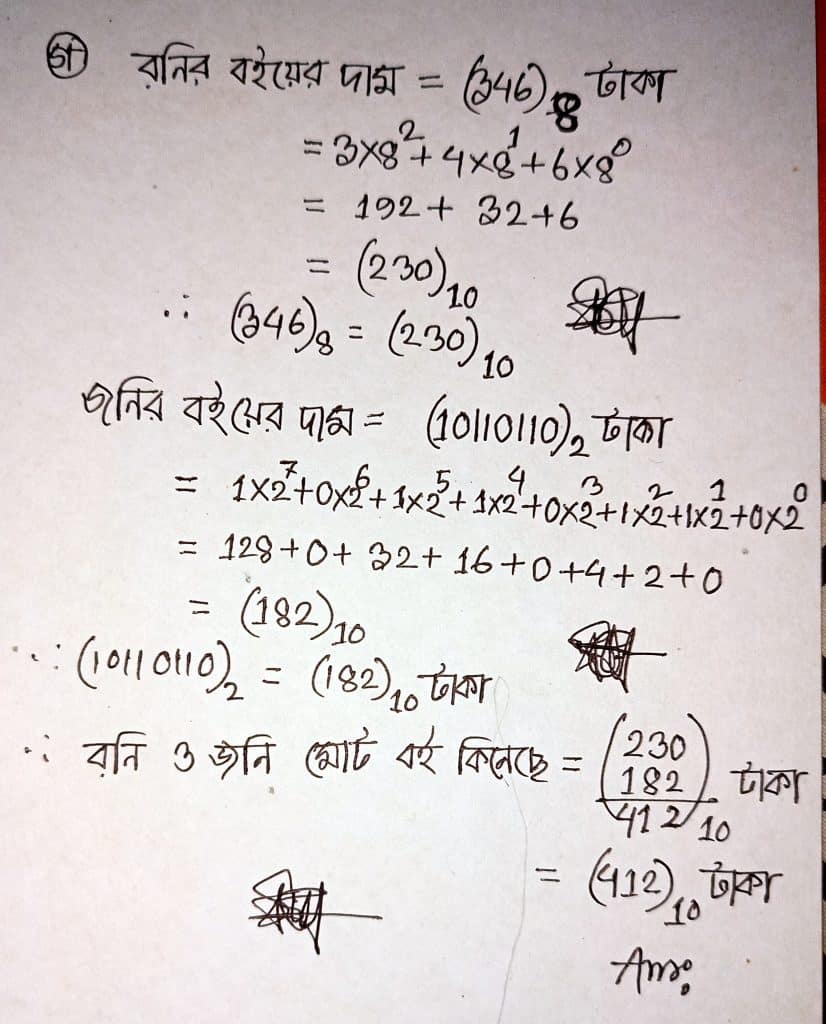 গ রনির বইয়ের দাম = (346)₈ টাকা
= 3×8²+4×8¹+6×8⁰
= 192+32+6
= (230)₁₀
∴ (346)₈ = (230)₁₀
জনির বইয়ের দাম = (10110110)₂ টাকা
= 1×2⁷+0×2⁶+1×2⁵+1×2⁴+0×2³+1×2²+1×2¹+0×2⁰
= 128+0+32+16+0+4+2+0
= (182)₁₀
∴ (10110110)₂ = (182)₁₀ টাকা
∴ রনি ও জনি মোট বই কিনেছে = (230
182) টাকা
412 ₁₀
= (412)₁₀ টাকা
Ans: